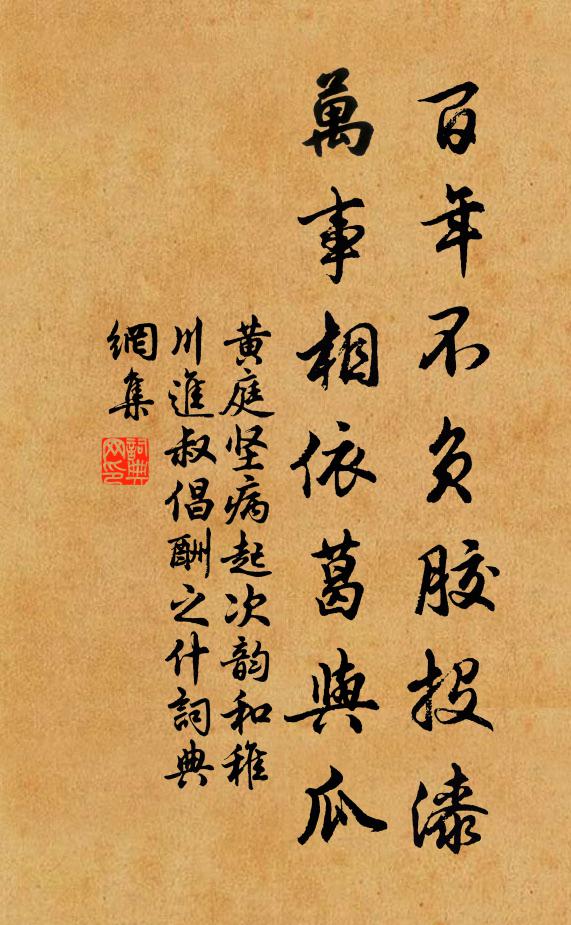 百年不负胶投漆
萬事相依葛與瓜
黄庭坚病起次韵和稚
川進叔倡酬之什詞典
網集
詞典
网印